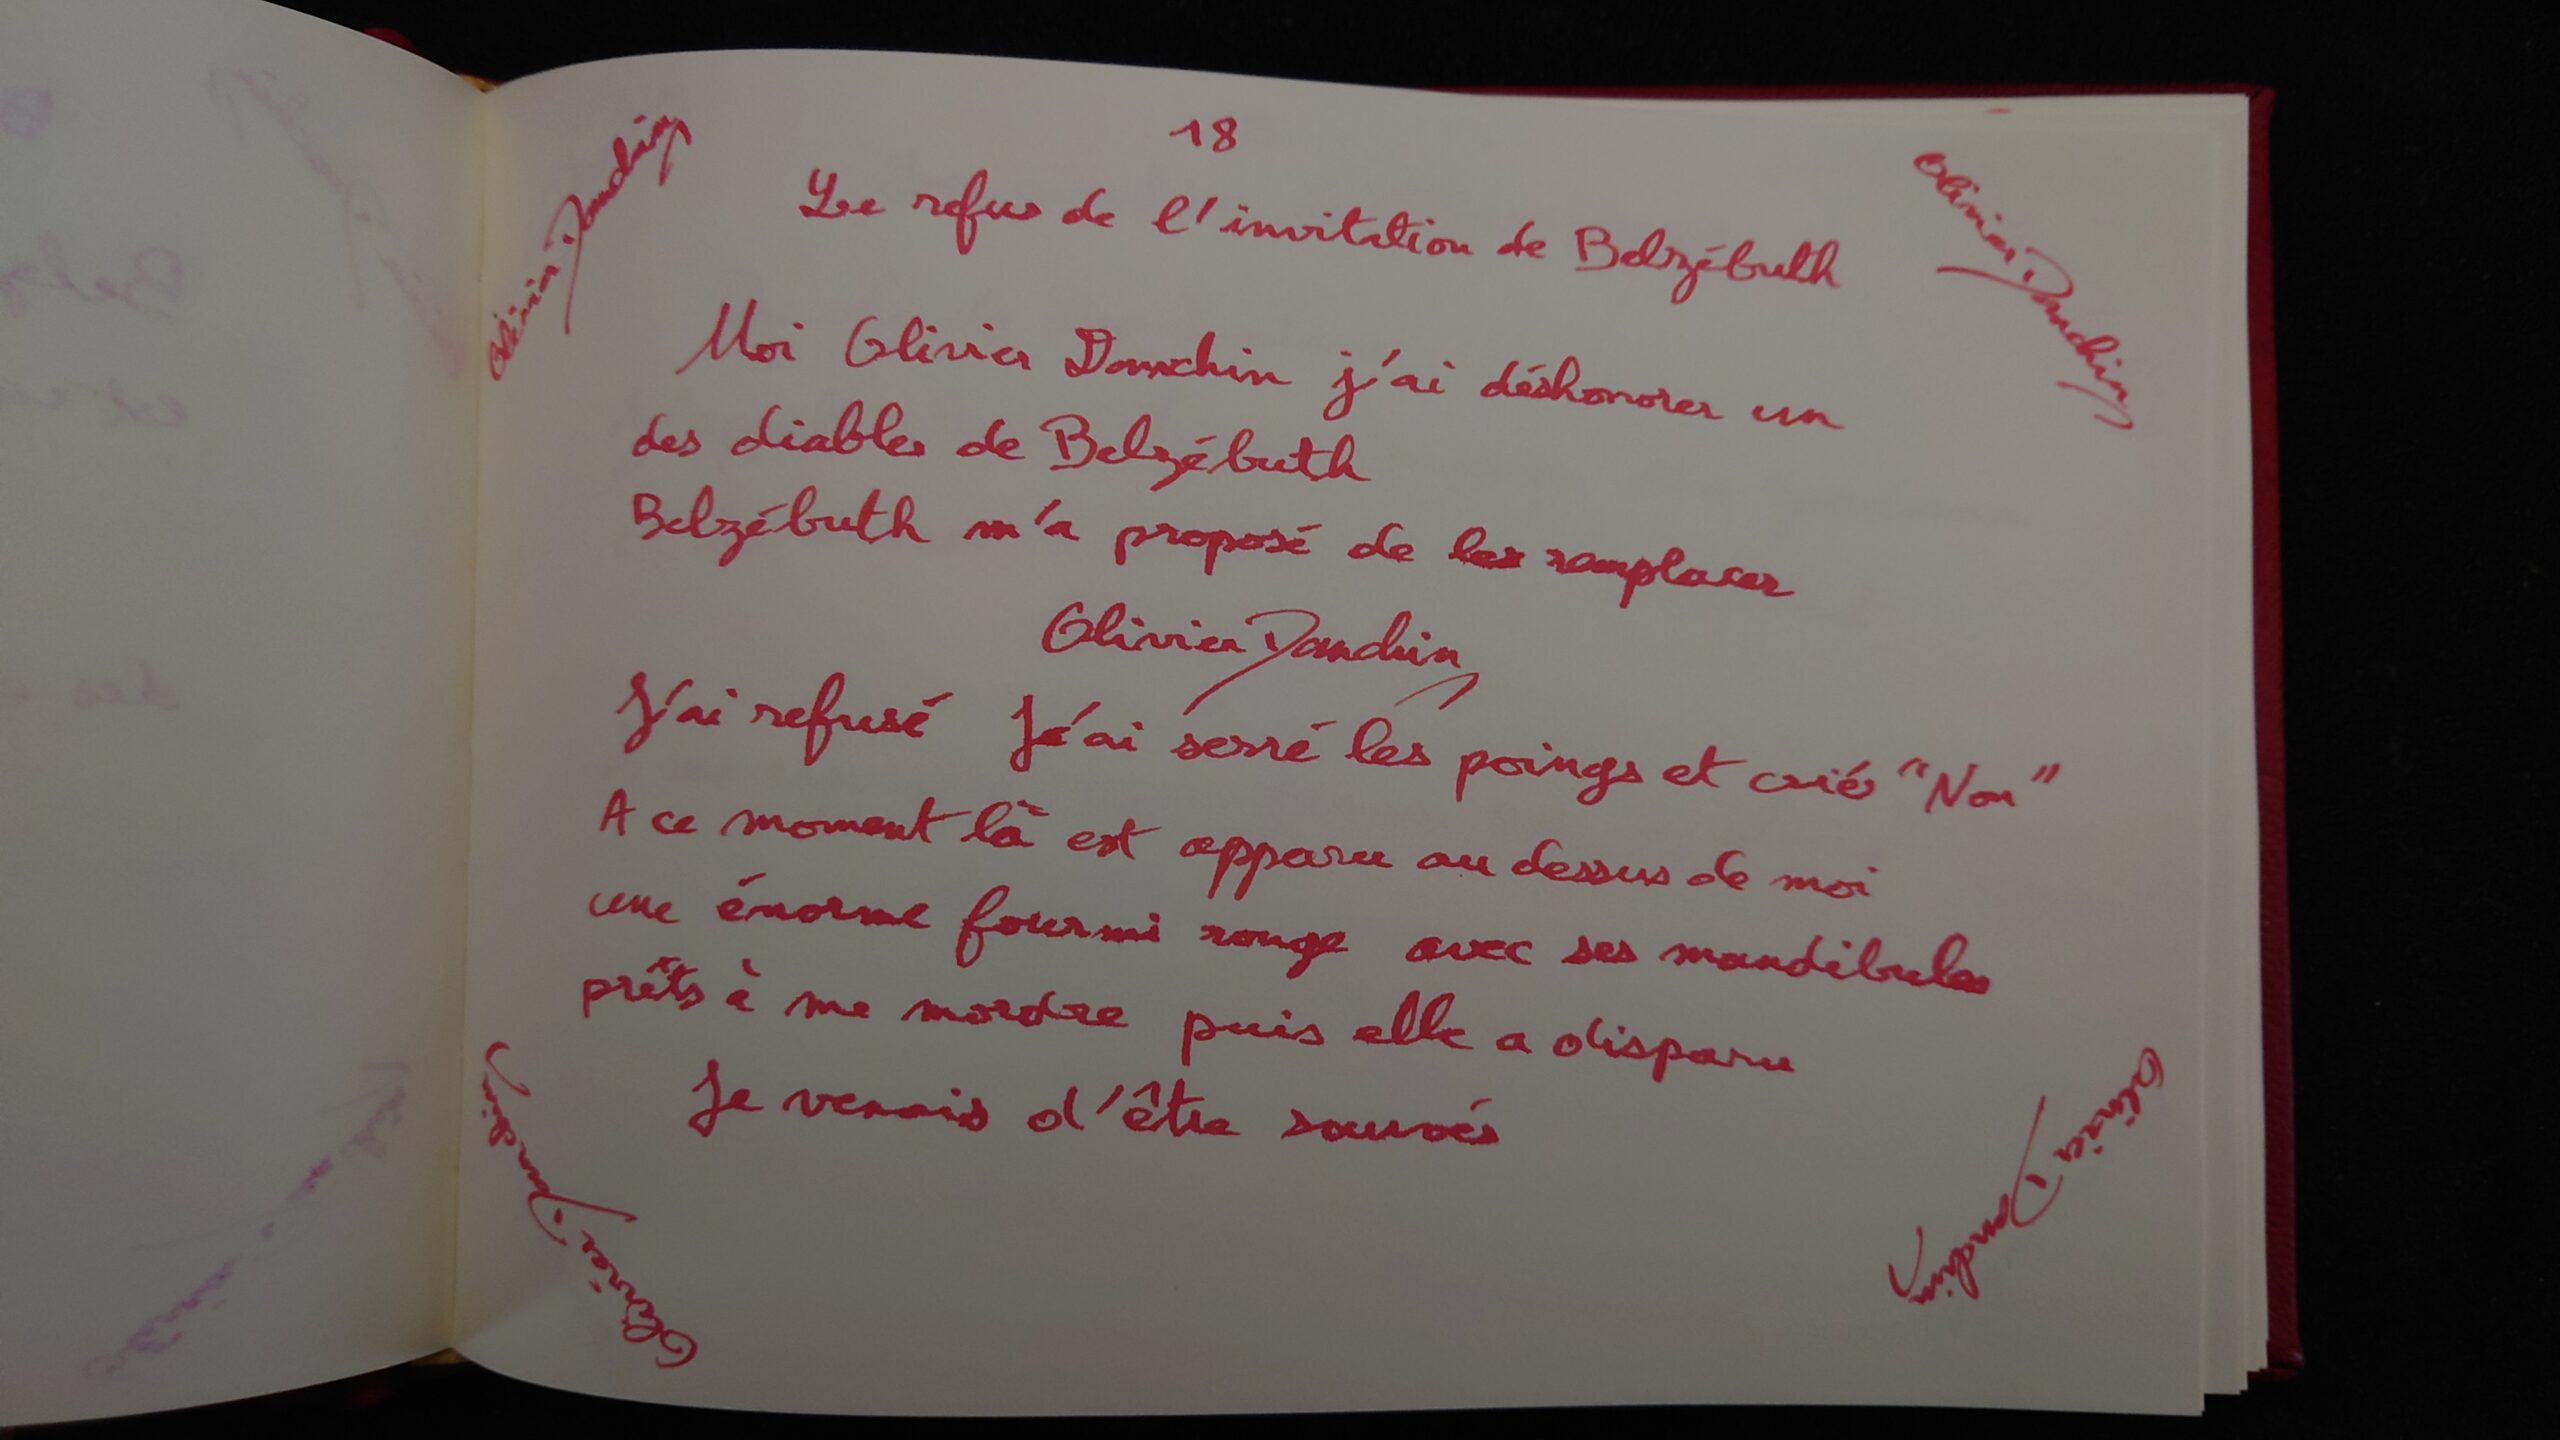 18
Le refus de l'invitation de Belzébuth
Olivier Danchin
Olivier Danchin
Moi Olivier Danchin j'ai déshonorer un
des diables de Belzébuth
Belzébuth m'a proposé de les remplacer
Olivier Danchin
J'ai refusé J'ai serré les poings et criés "Non"
A ce moment là est apparu au dessus de moi
une énorme fourmi rouge avec ses mandibules
prêts à me mordre puis elle a disparu
Je venais d'être sauvés
Olivier Danchin
Olivier Danchin